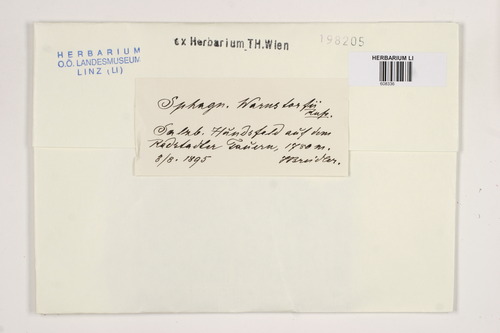 ex Herbarium TH.Wien
198205
HERBARIUM
O.Ö. LANDESMUSEUM
LINZ (LI)
HERBARIUM LI
Sphagn. Warnstorfii
Russ.
Salzb. Hundsfeld auf dem
Radstadter Tauern, 1750 m.
8/8. 1895 Breidler.